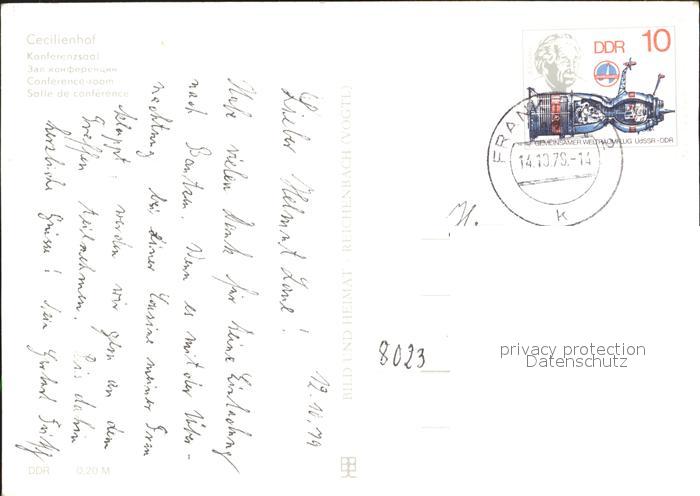 Cecilienhof
Konferenzsaal
Зал конференции
Conference-room
Salle de conférence
DDR 10
GEMEINSAMER WELTRAUMFLUG UdSSR-DDR
FRAN
14.10.79.-14
k
12.10.79
Lieber Helmut
Hab vielen Dank für Deine Einladung
nach Bautzen. Wenn es mit der Über-
nachtung bei einer Cousine meiner Frau
klappt, werden wir gern an dem
Treffen teilnehmen. Bis dahin
herzliche Grüsse! Dein
BILD UND HEIMAT REICHENBACH (VOGTL)
H.
8023
privacy protection
Datenschutz
DDR 0,20 M